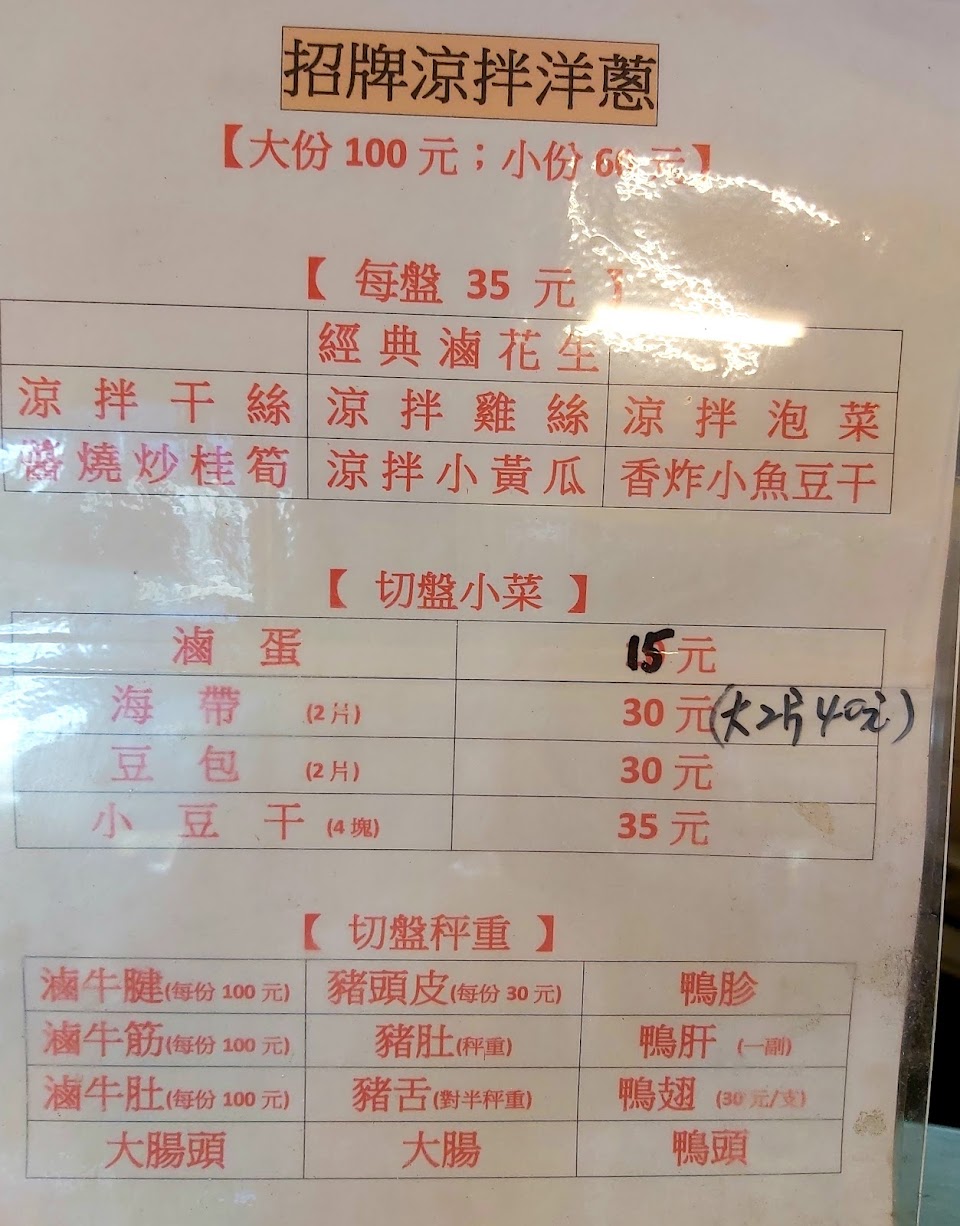 招牌涼拌洋蔥
【大份 100 元；小份 60 元】
【 每盤 35 元 】
經典滷花生
涼拌干絲 涼拌雞絲 涼拌泡菜
醬燒炒桂筍 涼拌小黃瓜 香炸小魚豆干
【 切盤小菜 】
滷蛋 15元
海帶 (2片) 30元(大2片40元)
豆包 (2片) 30元
小豆干 (4塊) 35元
【 切盤秤重 】
滷牛腱(每份 100 元) 豬頭皮(每份 30 元) 鴨胗
滷牛筋(每份 100 元) 豬肚(秤重) 鴨肝 (一副)
滷牛肚(每份 100 元) 豬舌(對半秤重) 鴨翅 (30 元/支)
大腸頭 大腸 鴨頭